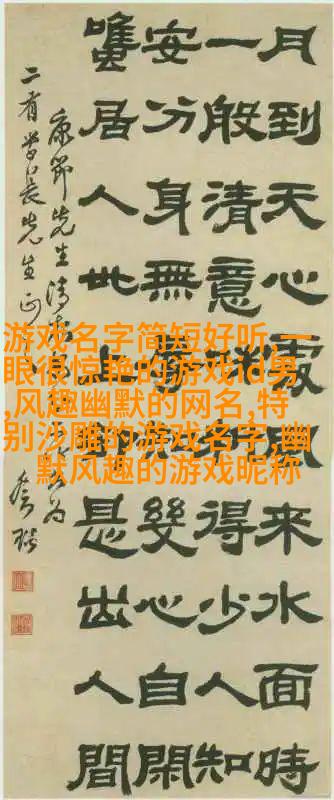 月到天心處風來水面時
一般清意味料得少人知
安分身無辱知幾心自閒
居人世上即是出人間
康節先生清
先生正
游戏名字简短好听,一
眼很惊艳的游戏id男
,风趣幽默的网名,特
别沙雕的游戏名字,幽
默风趣的游戏昵称